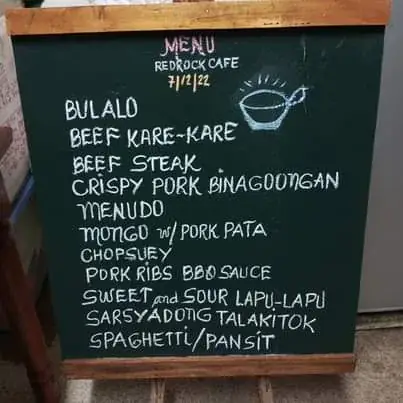 MENU
REDROCK CAFE
7/12/22
BULALO
BEEF KARE-KARE
BEEF STEAK
CRISPY PORK BINAGOONGAN
MENUDO
MONGO w/ PORK PATA
CHOPSUEY
PORK RIBS BBQ SAUCE
SWEET and SOUR LAPU-LAPU
SARSYADONG TALAKITOK
SPAGHETTI/PANSIT